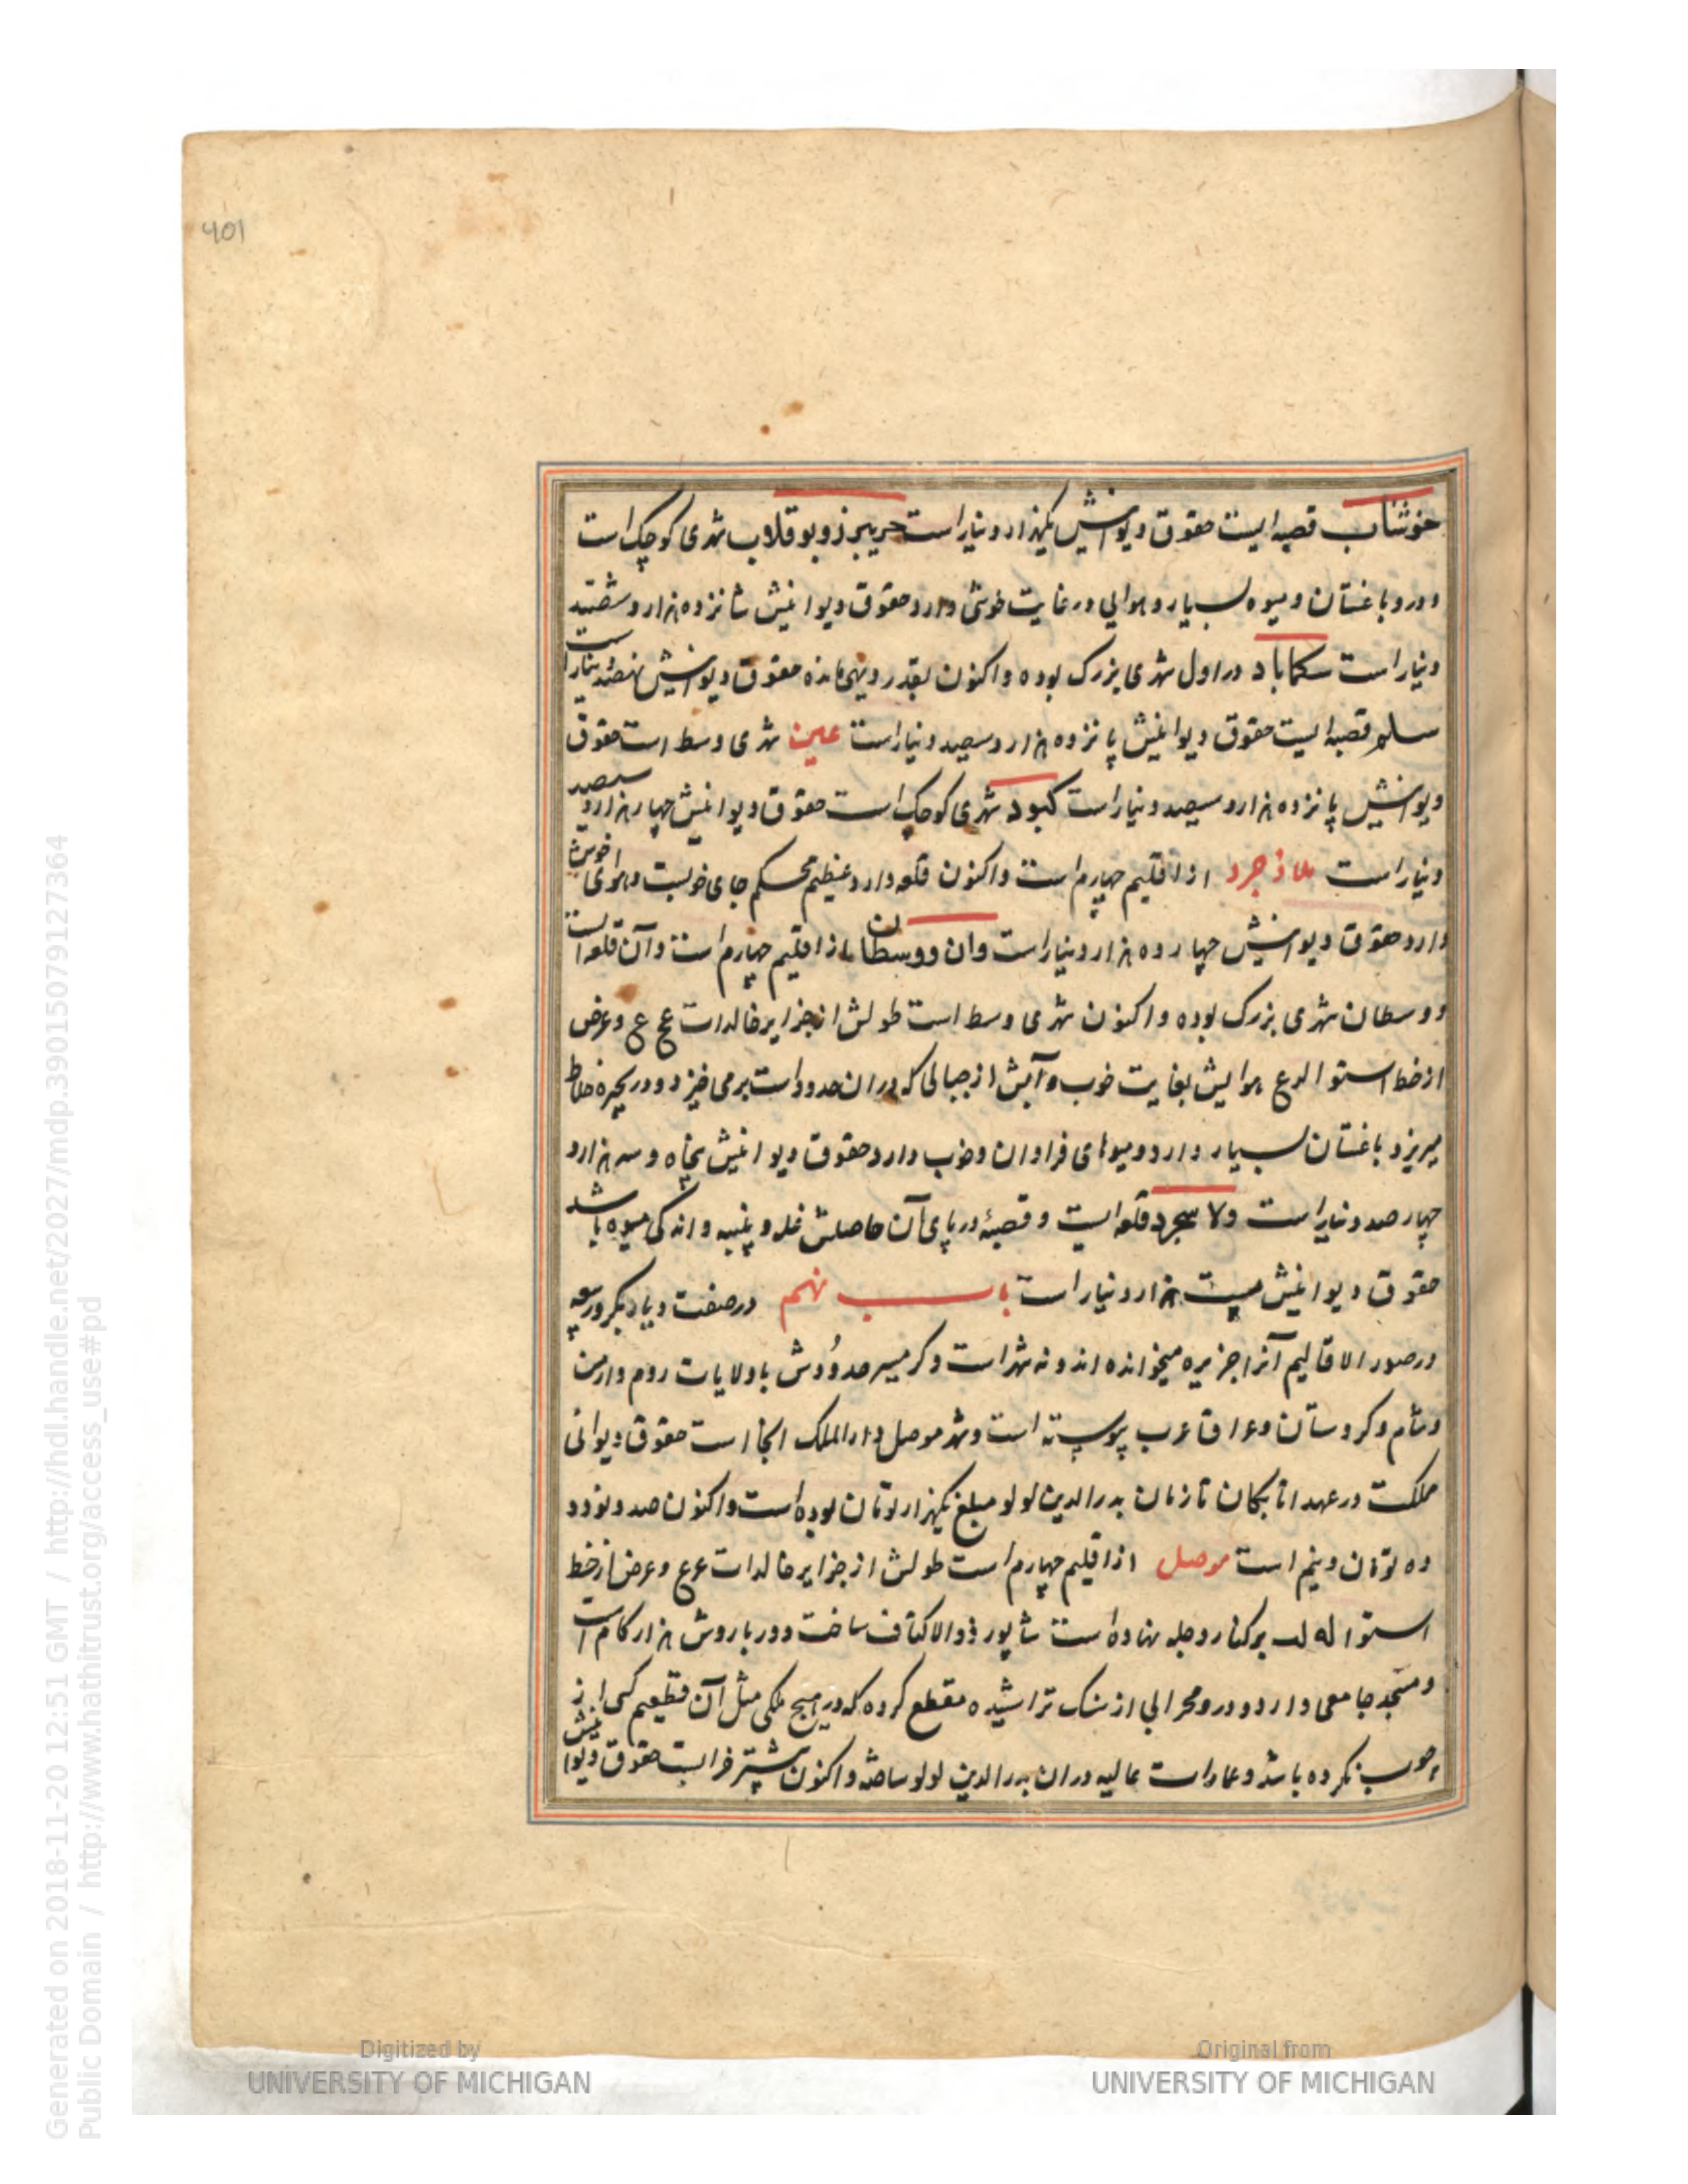 401
خوشاب قصبه ایست حقوق دیوانیش یکهزار دینار است خریبرز و بوقلاب شهری کوچک است
و درو باغستان و میوه بسیار و هوایی در غایت خوشی دارد حقوق دیوانیش شانزده هزار و ششصد
دینار است سکماباد در اول شهری بزرک بوده و اکنون بقدر دیهی مانده حقوق دیوانیش نهصد دینار است
سلم قصبه ایست حقوق دیوانیش پانزده هزار و سیصد دینار است عین شهری وسط است حقوق
دیوانیش پانزده هزار و سیصد دینار است کبود شهری کوچک است حقوق دیوانیش چهار هزار و سیصد
دینار است ملاذجرد از اقلیم چهارم است و اکنون قلعه دارد عظیم محکم جای خوبست و هوای خوش
دارد حقوق دیوانیش چهارده هزار دینار است وان و وسطان از اقلیم چهارم است و آن قلعه است
و وسطان شهری بزرک بوده و اکنون شهری وسط است طولش از جزایر خالدات عج ع و عرض
از خط استوا لدع هوایش بغایت خوب و آبش از جبالی که در ان حدود است برمی خیزد و در بحیره خلاط
میریزد باغستان بسیار دارد و میوهای فراوان و خوب دارد حقوق دیوانیش پنجاه و سه هزار و
چهار صد دینار است ولاسجرد قلعه ایست و قصبهٔ در پای آن حاصلش غله و پنبه و اندکی میوه باشد
حقوق دیوانیش هزار دینار است باب نهم در صفت دیار بکر و ربیعه
در صور الاقالیم آنرا جزیره میخوانده اند و نه شهر است و کرمسیر حدودش با ولایات روم و ارمن
و شام و کردستان و عراق عرب پیوسته است و شهر موصل دارالملک انجا است حقوق دیوانی
مملکت در عهد اتابکان تا زمان بدرالدین لولو مبلغ یکهزار تومان بوده است و اکنون صد و نود و
ده تومان و نیم است موصل از اقلیم چهارم است طولش از جزایر خالدات عع و عرض از خط
استوا له لب بر کنار دجله نهاده است شاپور ذوالاکتاف ساخت دور باروش هزار کام است
و مسجد جامعی دارد و درو محرابی از سنک تراشیده مقطع کرده که در هیچ ملکی مثل آن تقطیع کسی از
چوب نکرده باشد و عمارات عالیه دران بدرالدین لولو ساخته و اکنون بیشتر خرابست حقوق دیوانیش
Digitized by
UNIVERSITY OF MICHIGAN
Original from
UNIVERSITY OF MICHIGAN
Generated on 2018-11-20 12:51 GMT / http://hdl.handle.net/2027/mdp.39015079127364
Public Domain / http://www.hathitrust.org/access_use#pd